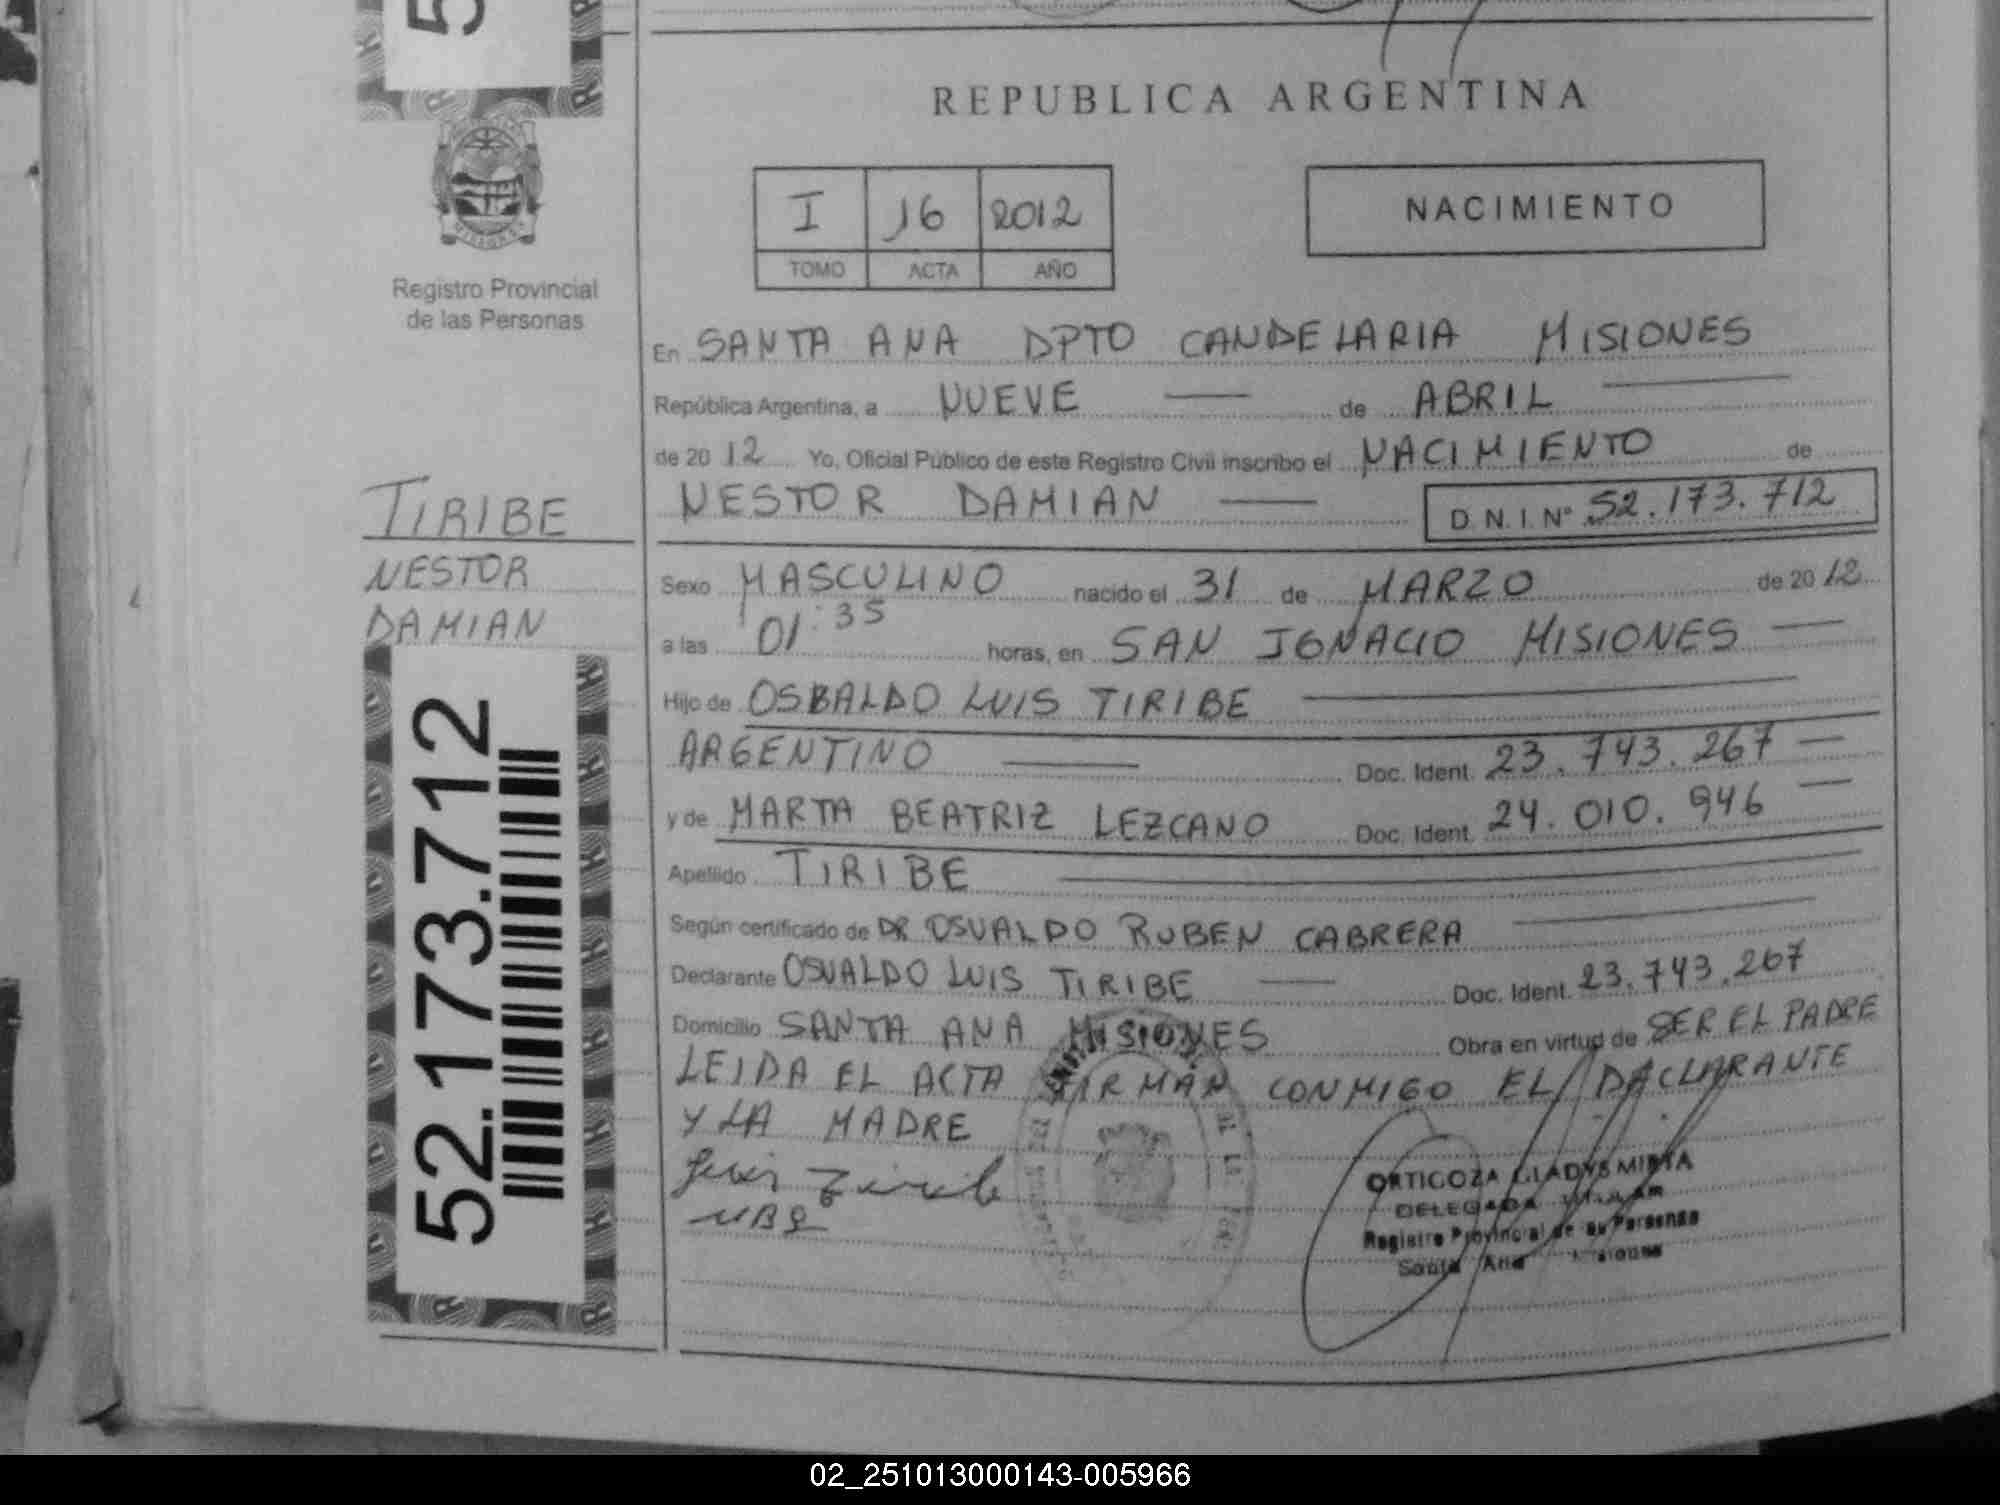 REPUBLICA ARGENTINA
I 16 2012
TOMO ACTA AÑO
NACIMIENTO
Registro Provincial
de las Personas
TIRIBE
NESTOR
DAMIAN
52.173.712
En SANTA ANA DPTO CANDELARIA MISIONES
República Argentina, a NUEVE de ABRIL
de 2012 Yo, Oficial Público de este Registro Civil inscribo el NACIMIENTO de
NESTOR DAMIAN D.N.I. Nº 52.173.712
Sexo MASCULINO nacido el 31 de MARZO de 2012
a las 01:35 horas, en SAN IGNACIO MISIONES
Hijo de OSBALDO LUIS TIRIBE
ARGENTINO Doc. Ident. 23.743.267
y de MARTA BEATRIZ LEZCANO Doc. Ident. 24.010.946
Apellido TIRIBE
Según certificado de DR OSVALDO RUBEN CABRERA
Declarante OSVALDO LUIS TIRIBE Doc. Ident. 23.743.267
Domicilio SANTA ANA MISIONES Obra en virtud de SER EL PADRE
LEIDA EL ACTA FIRMAN CONMIGO EL DACLARANTE
Y LA MADRE
ORTIGOZA GLADYS MIRTA
DELEGADA TITULAR
Registro Provincial de las Personas
Santa Ana Misiones
02_251013000143-005966